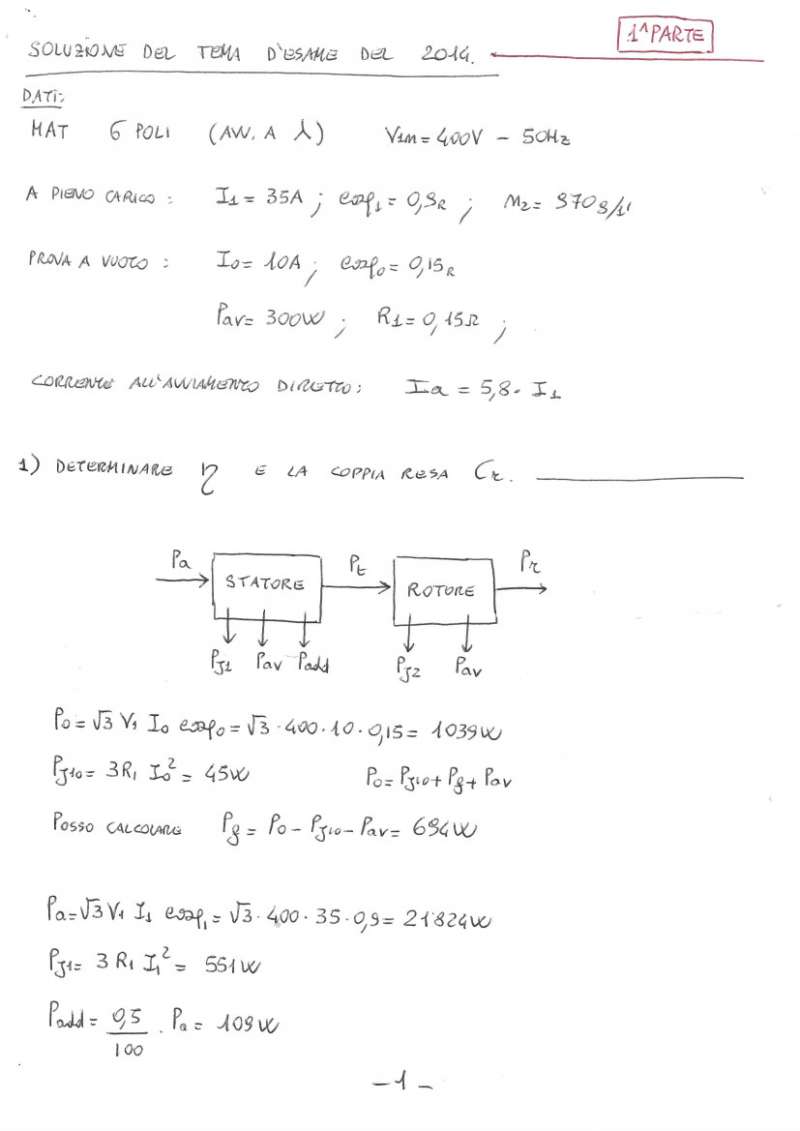 1ᴬ PARTE
SOLUZIONE DEL TEMA D'ESAME DEL 2014.
DATI:
MAT 6 POLI (AVV. A λ) V1m = 400V - 50Hz
A PIENO CARICO: I1 = 35A ; cosφ1 = 0,9R ; M2 = 970 g/1'
PROVA A VUOTO: I0 = 10A ; cosφ0 = 0,15R
Pav = 300W ; R1 = 0,15Ω ;
CORRENTE ALL'AVVIAMENTO DIRETTO: Ia = 5,8 · I1
1) DETERMINARE η E LA COPPIA RESA Cr.
Pa STATORE Pt ROTORE Pr
PJ1 Pav Padd PJ2 Pav
P0 = √3 V1 I0 cosφ0 = √3 · 400 · 10 · 0,15 = 1039W
PJ10 = 3R1 I0² = 45W P0 = PJ10 + Pf + Pav
POSSO CALCOLARE Pf = P0 - PJ10 - Pav = 694W
Pa = √3 V1 I1 cosφ1 = √3 · 400 · 35 · 0,9 = 21'824W
PJ1 = 3 R1 I1² = 551W
Padd = 0,5/100 · Pa = 109W
- 1 -